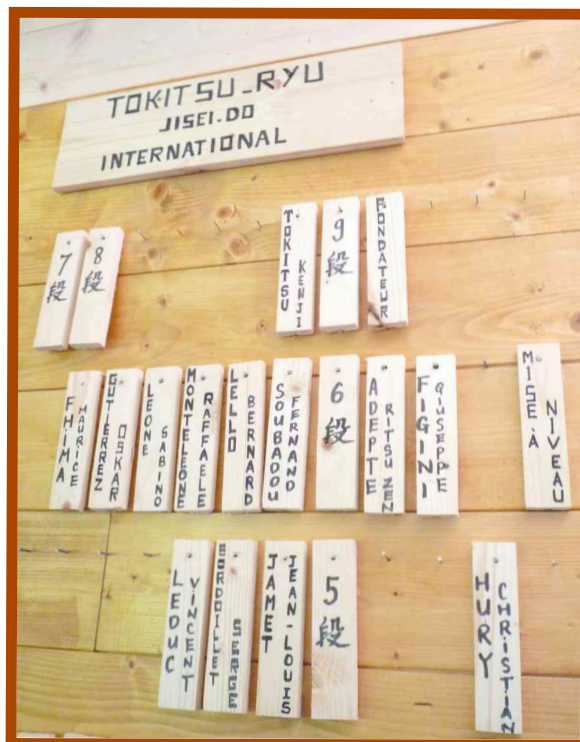 TOKITSU_RYU
JISEI-DO
INTERNATIONAL
7段
8段
TOKITSU
KENJI
9段
FONDATEUR
FHIMA
MAURICE
GUTIERREZ
OSKAR
LEONE
SABINO
MONTELEONE
RAFFAELE
LELLO
BERNARD
SOUBADOU
FERNAND
6段
ADEPTE
RITSUZEN
FIGINI
GIUSEPPE
MISE À
NIVEAU
LEDUC
VINCENT
BORDOILLET
SERGE
JAMET
JEAN-LOUIS
5段
HURY
CHRISTIAN